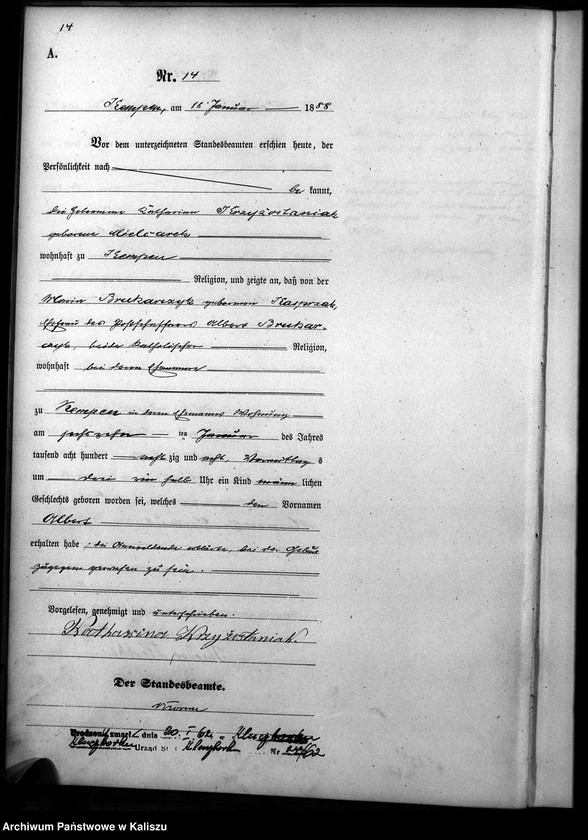 14
A.
Nr. 14
Kempen, am 16 Januar 1888
Vor dem unterzeichneten Standesbeamten erschien heute, der
Persönlichkeit nach
be kannt,
die Hebamme Katharina Krzyżostaniak
geborene Mielcarek
wohnhaft zu Kempen
Religion, und zeigte an, daß von der
Maria Brukarczyk geborenen Kasprzak,
Ehefrau des Postschaffners Albert Brukar-
czyk, beide katholischer Religion,
wohnhaft bei deren Ehemanne
zu Kempen in deren Ehemannes Wohnung
am ten Januar des Jahres
tausend acht hundert acht zig und acht, Vormittag s
um drei ein halb Uhr ein Kind männ lichen
Geschlechts geboren worden sei, welches den Vornamen
Albert
erhalten habe; die Anmeldende erklärte, bei der Geburt
zugegen gewesen zu sein.
Vorgelesen, genehmigt und unterschrieben.
Katharina
Der Standesbeamte.
zmarł dnia 20. I 62 Kluczborku
Kluczborku Urząd St. Kluczbork Nr /62
Archiwum Państwowe w Kaliszu